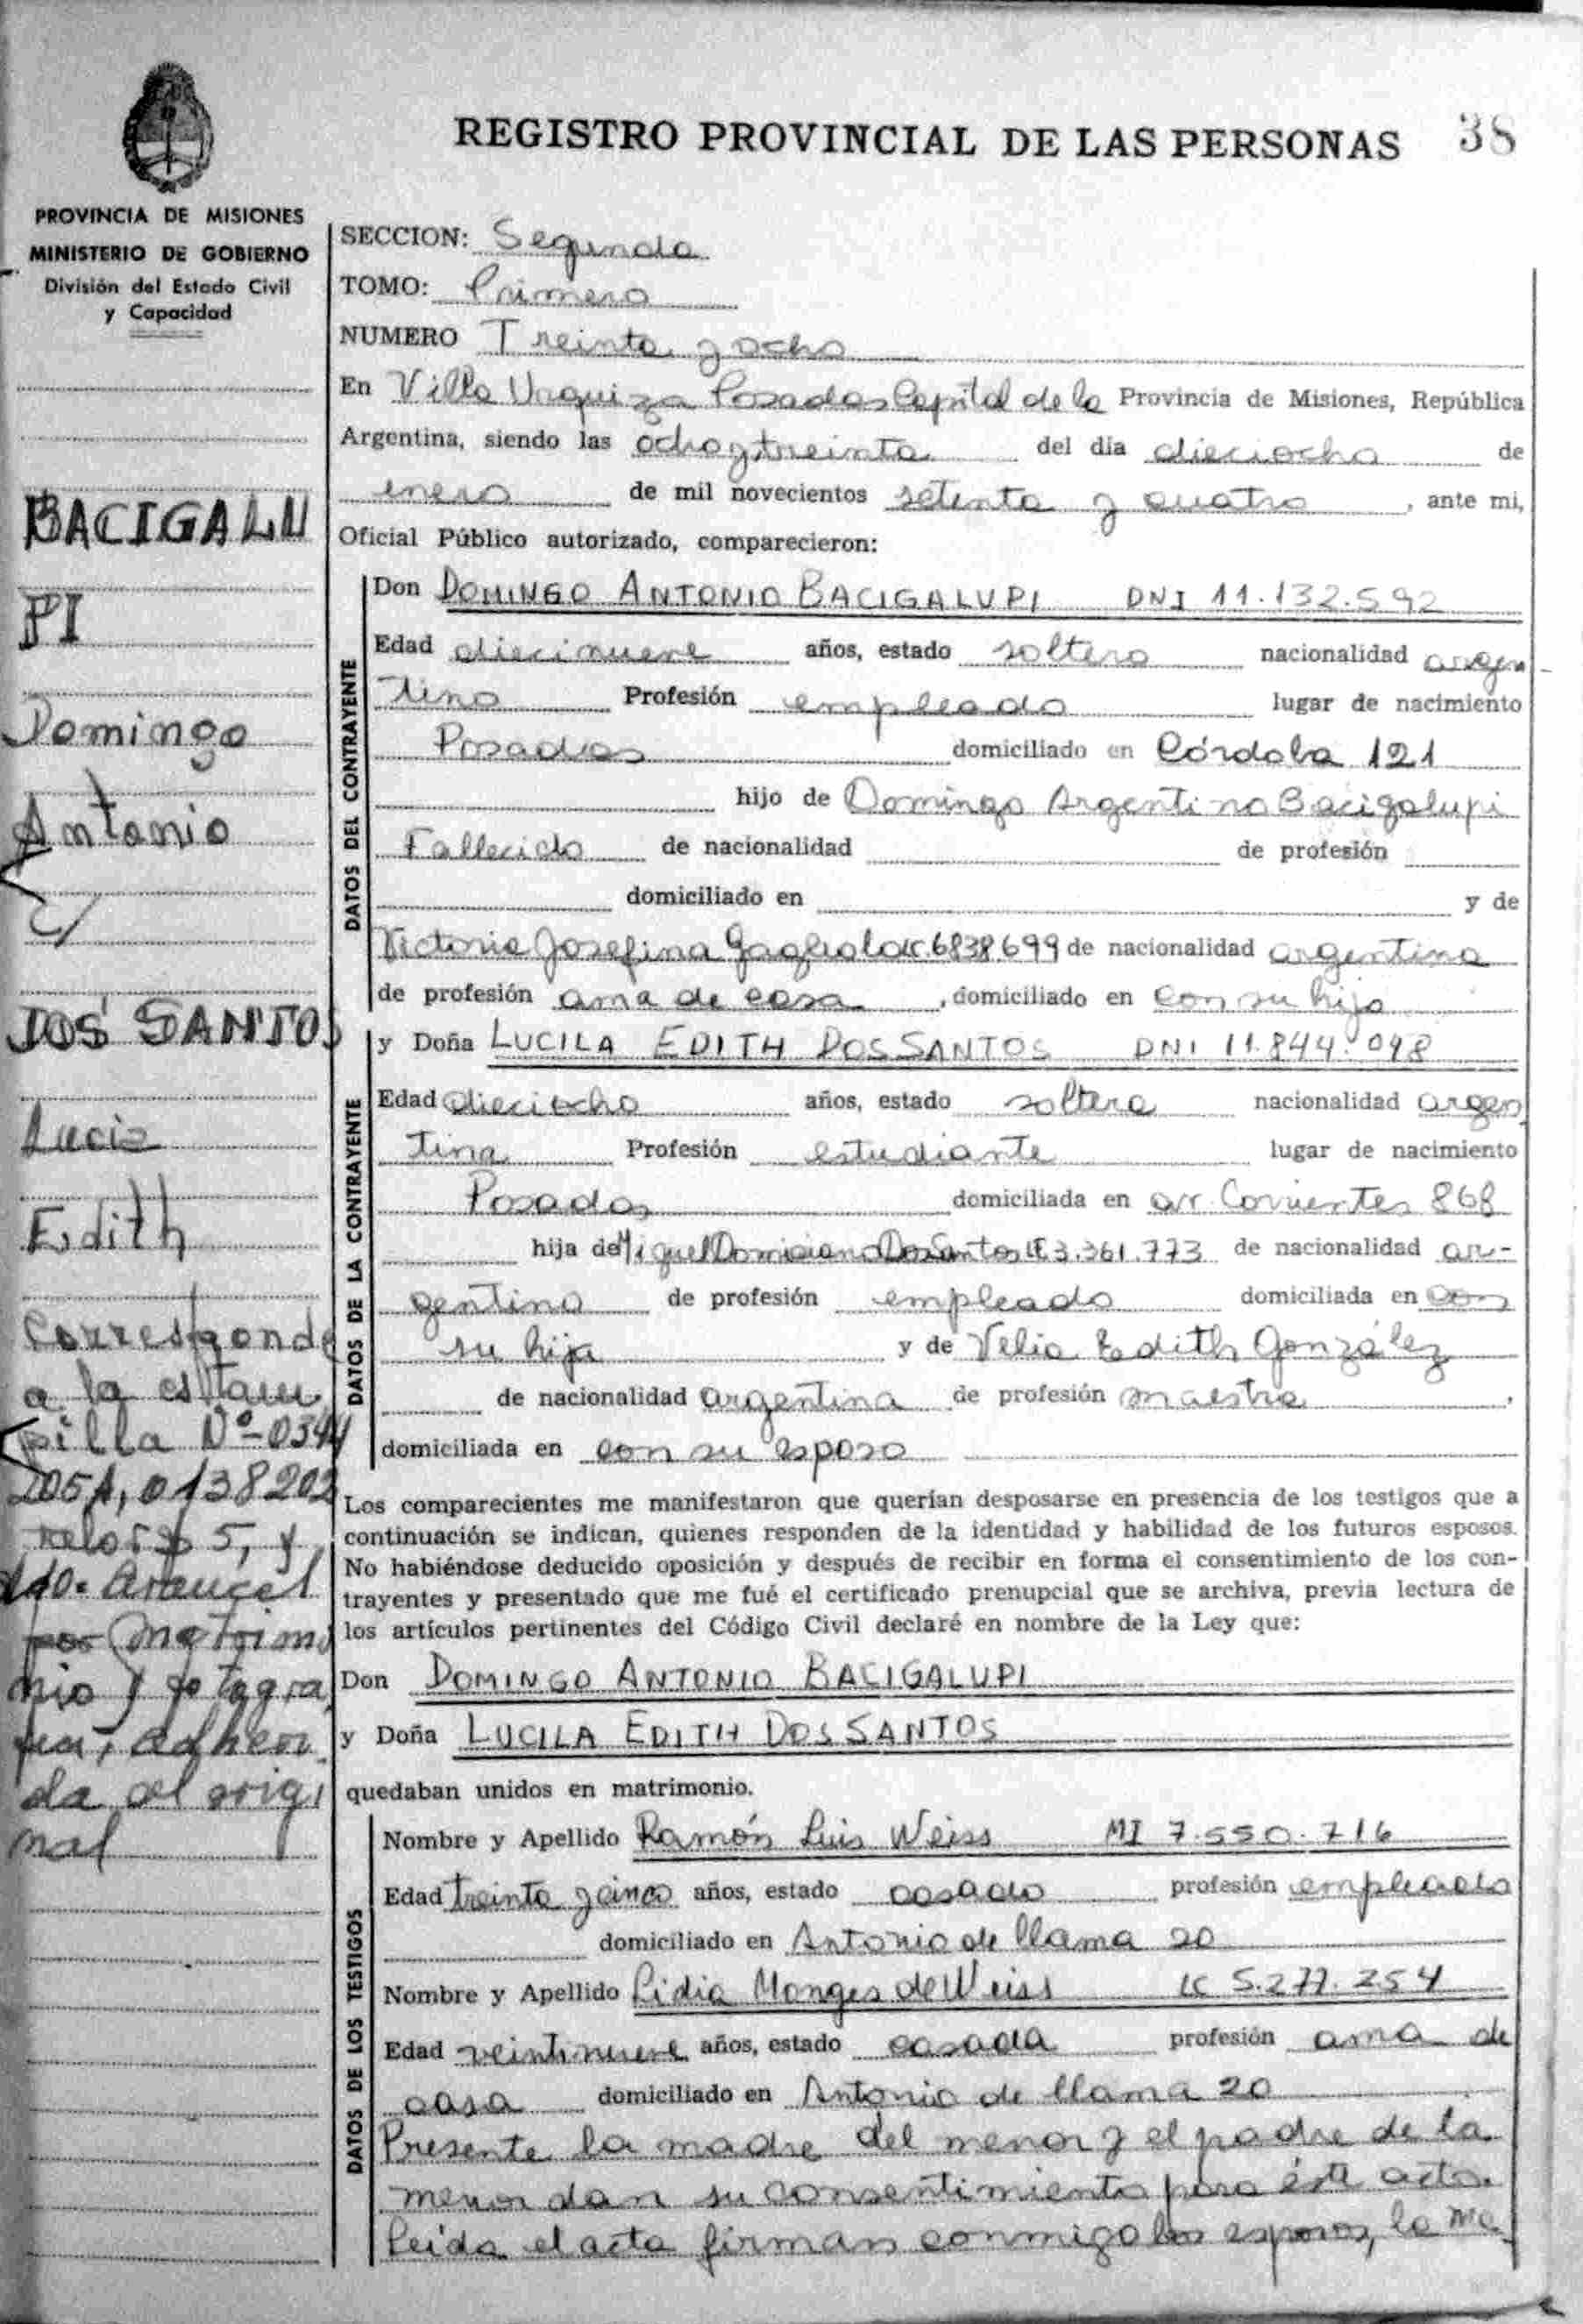 REGISTRO PROVINCIAL DE LAS PERSONAS 38
PROVINCIA DE MISIONES
MINISTERIO DE GOBIERNO
División del Estado Civil
y Capacidad
BACIGALU
PI
Domingo
Antonio
c/
DOS SANTOS
Lucia
Edith
Corresponde
a la estam
pilla Nº-0344
205A, 0138202
5, y
Arancel
por Matrimo
nio y fotogra
fia, adheri
da al origi
nal
SECCION: Segunda
TOMO: Primero
NUMERO Treinta y ocho
En Villa Urquiza Posadas Capital de la Provincia de Misiones, República
Argentina, siendo las ocho y treinta del día dieciocho de
enero de mil novecientos setenta y cuatro, ante mi,
Oficial Público autorizado, comparecieron:
DATOS DEL CONTRAYENTE
Don DOMINGO ANTONIO BACIGALUPI DNI 11.132.592
Edad diecinueve años, estado soltero nacionalidad argen
tino Profesión empleado lugar de nacimiento
Posadas domiciliado en Córdoba 121
hijo de Domingo Argentino Bacigalupi
Fallecido de nacionalidad de profesión
domiciliado en y de
Victoria Josefina LC. 6838.699 de nacionalidad argentina
de profesión ama de casa, domiciliado en con su hijo
DATOS DE LA CONTRAYENTE
y Doña LUCILA EDITH DOS SANTOS DNI 11.844.098
Edad dieciocho años, estado soltera nacionalidad argen
tina Profesión estudiante lugar de nacimiento
Posadas domiciliada en av. Corrientes 868
hija de Miguel Domiciano Dos Santos LE 3.361.773 de nacionalidad ar-
gentino de profesión empleado domiciliada en con
su hija y de Velia Edith González
de nacionalidad argentina de profesión maestra,
domiciliada en con su esposo
Los comparecientes me manifestaron que querían desposarse en presencia de los testigos que a
continuación se indican, quienes responden de la identidad y habilidad de los futuros esposos.
No habiéndose deducido oposición y después de recibir en forma el consentimiento de los con-
trayentes y presentado que me fué el certificado prenupcial que se archiva, previa lectura de
los artículos pertinentes del Código Civil declaré en nombre de la Ley que:
Don DOMINGO ANTONIO BACIGALUPI
y Doña LUCILA EDITH DOS SANTOS
quedaban unidos en matrimonio.
DATOS DE LOS TESTIGOS
Nombre y Apellido Ramón Luis Weiss MI 7.550.716
Edad treinta y cinco años, estado casado profesión empleado
domiciliado en Antonio de llama 20
Nombre y Apellido Lidia Monges de Weiss LC 5.277.254
Edad veintinueve años, estado casada profesión ama de
casa domiciliado en Antonio de llama 20
Presente la madre del menor y el padre de la
menor dan su consentimiento para éste acto.
Leida el acta firman conmigo los esposos, la ma